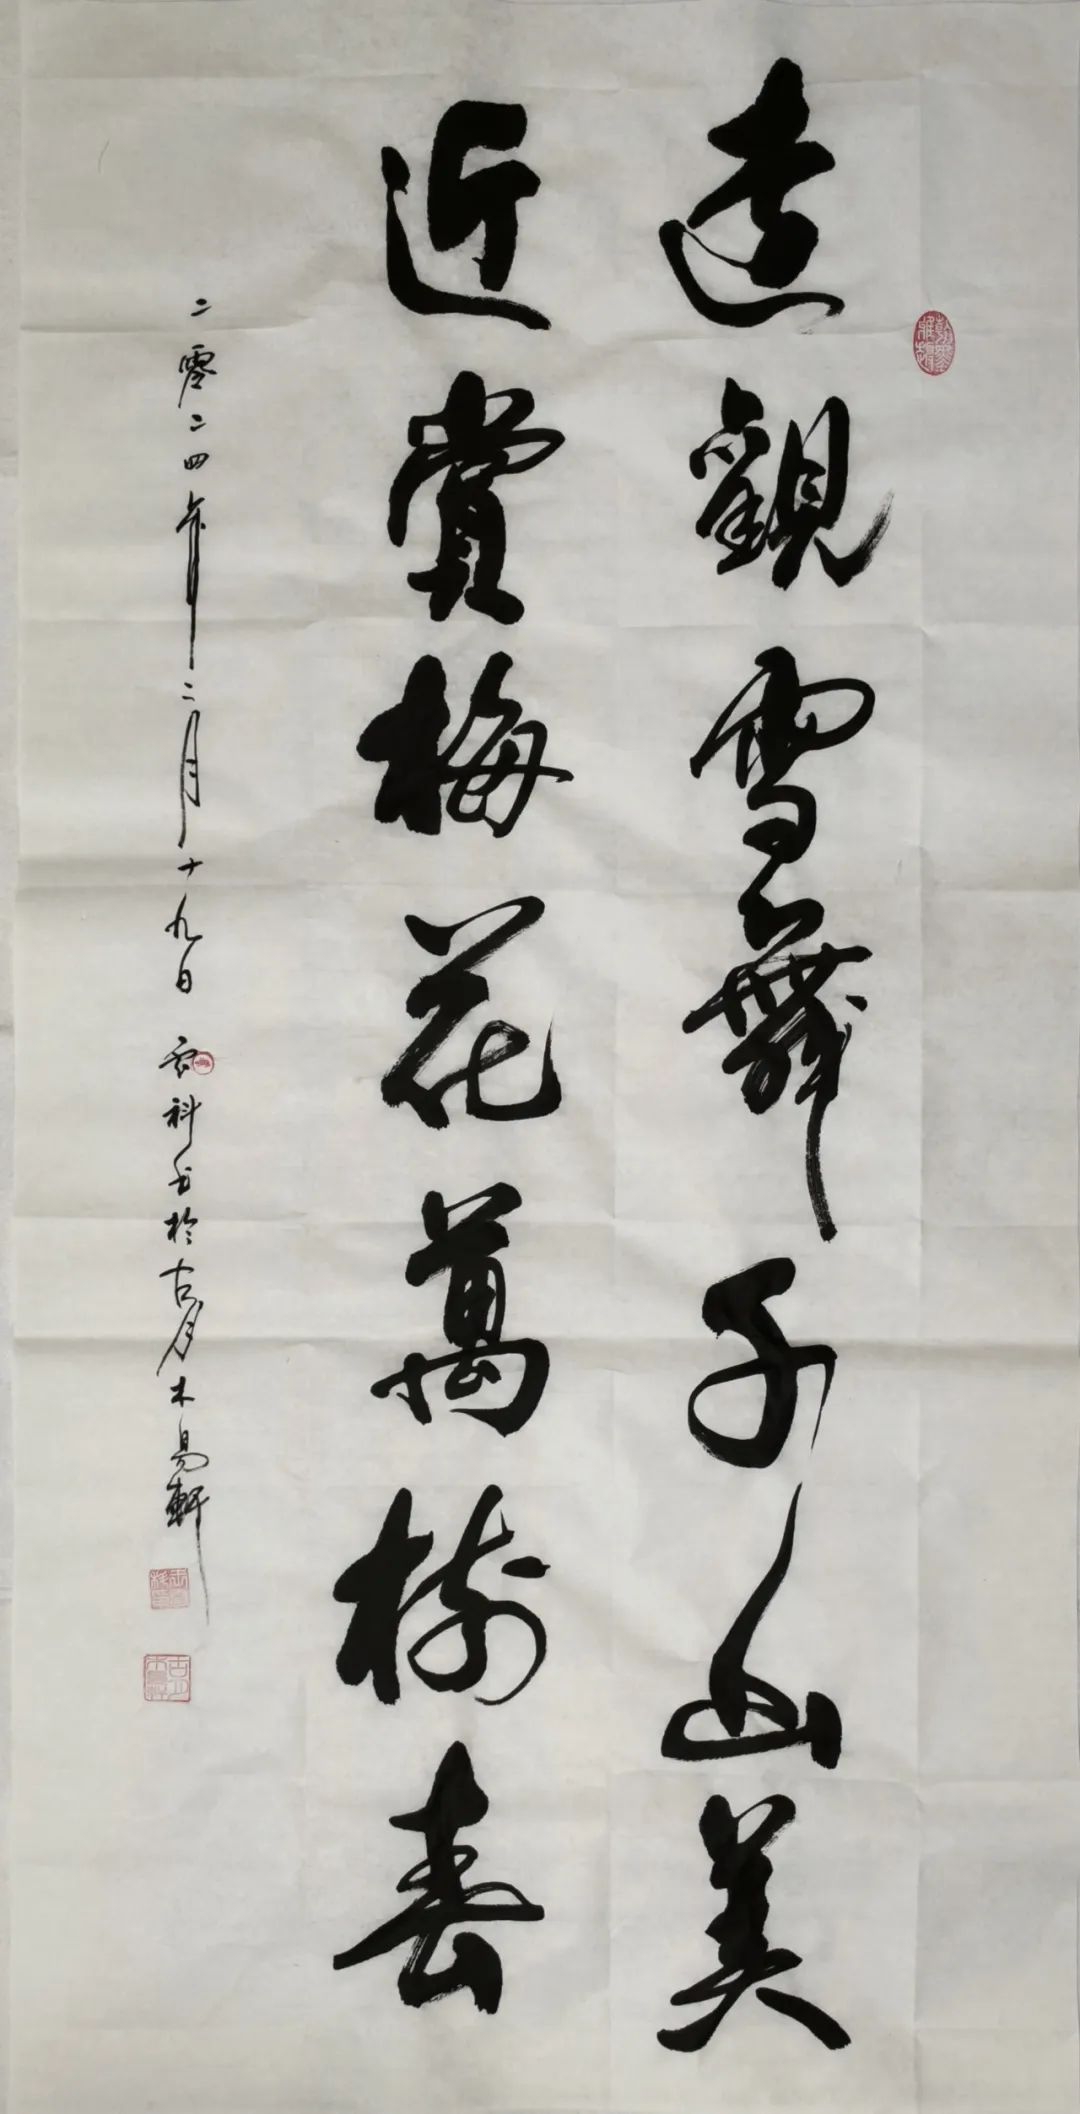 遠觀雪舞千山美
近賞梅花萬樹春
二零二四年二月十九日 雲科书於古月木易軒
翰墨雅趣